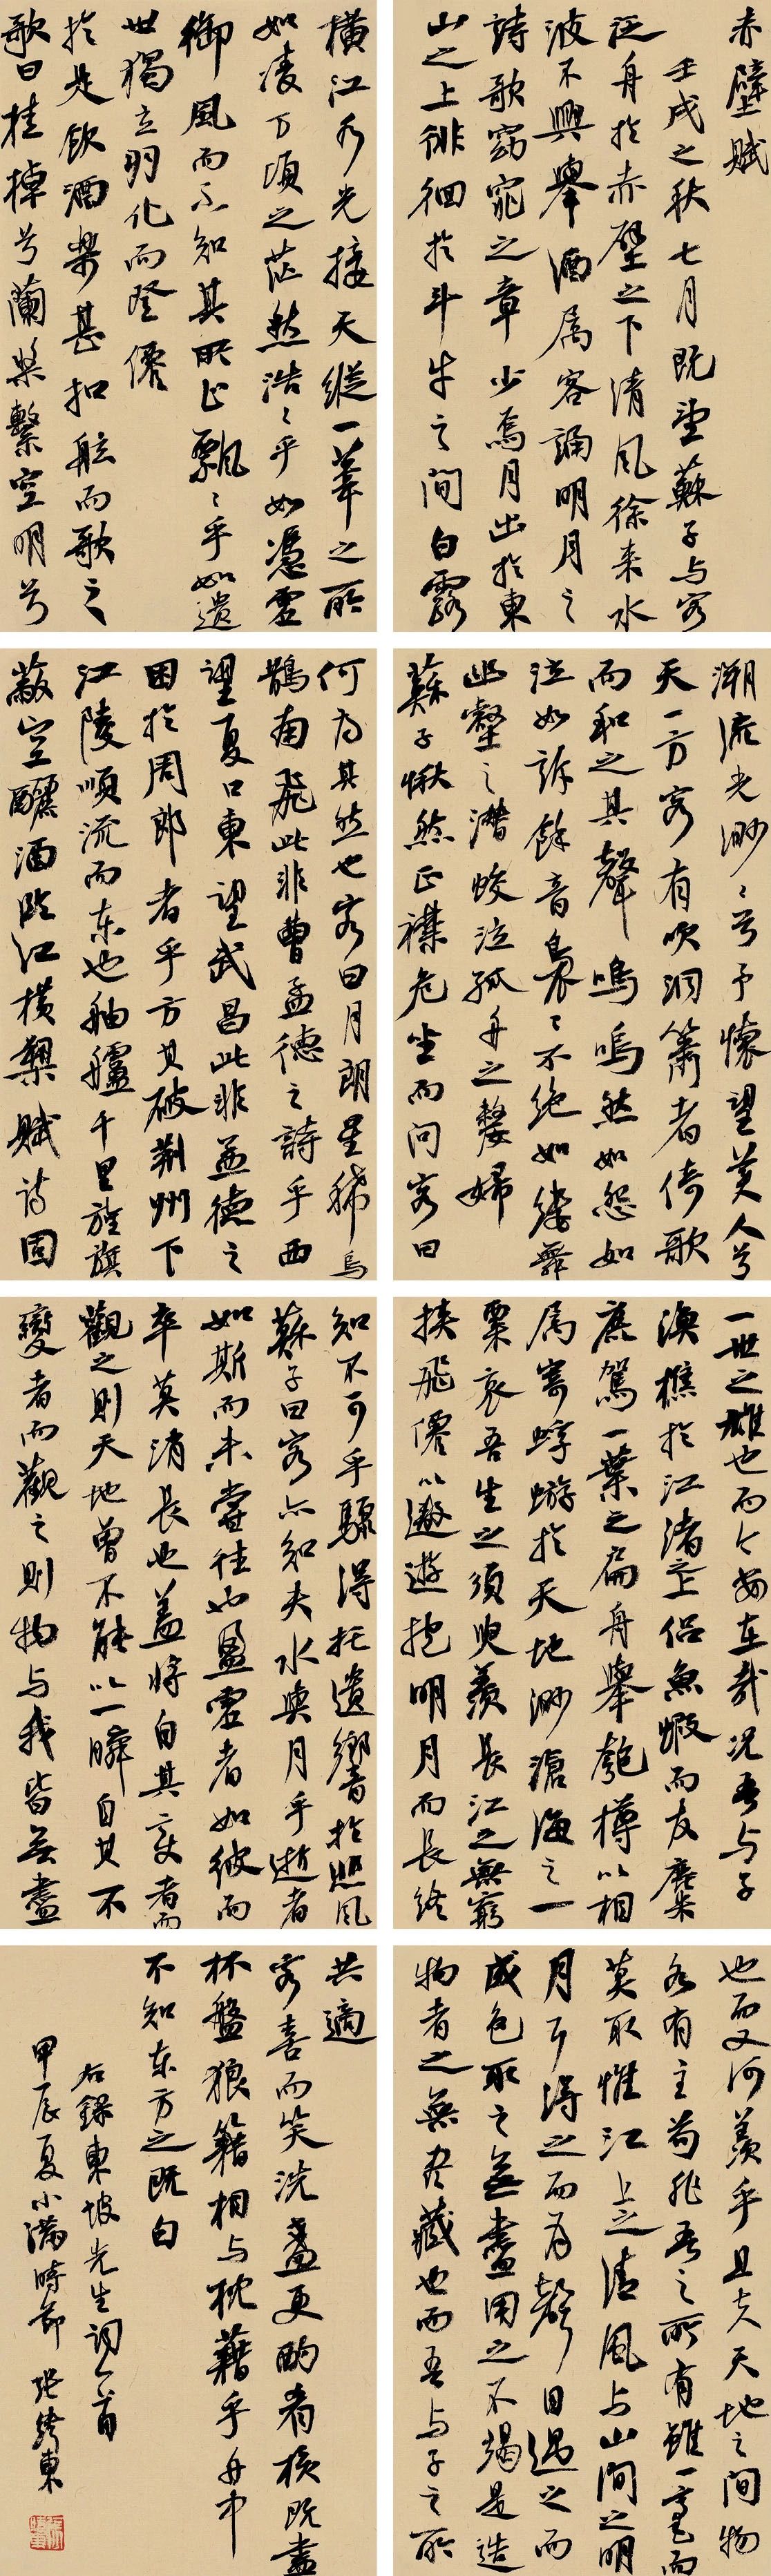 赤壁賦
壬戌之秋七月既望蘇子与客
泛舟於赤壁之下清风徐来水
波不興舉酒属客誦明月之
詩歌窈窕之章少焉月出於東
山之上徘徊於斗牛之間白露
橫江水光接天縱一葦之所
如凌万頃之茫然浩々乎如憑虚
御風而不知其所止飄々乎如遺
世獨立羽化而登僊
於是飲酒樂甚扣舷而歌之
歌曰桂棹兮蘭槳擊空明兮
溯流光渺々兮予懷望美人兮
天一方客有吹洞簫者倚歌
而和之其聲嗚嗚然如怨如
泣如訴餘音裊々不绝如縷舞
幽壑之潛蛟泣孤舟之嫠婦
蘇子愀然正襟危坐而问客曰
何为其然也客曰月朗星稀烏
鵲南飛此非曹孟德之詩乎西
望夏口東望武昌此非孟德之
困於周郎者乎方其破荆州下
江陵順流而东也舳艫千里旌旗
蔽空釃酒临江橫槊賦诗固
一世之雄也而今安在哉况吾与子
漁樵於江渚之上侣魚蝦而友麋
鹿駕一葉之扁舟舉匏樽以相
属寄蜉蝣於天地渺滄海之一
粟哀吾生之须臾羨长江之無窮
挟飛僊以遨遊抱明月而长终
知不可乎驟得托遺響於悲风
蘇子曰客亦知夫水與月乎逝者
如斯而未嘗往也盈虚者如彼而
卒莫消长也盖将自其变者而
觀之则天地曾不能以一瞬自其不
變者而觀之则物与我皆无盡
也而又何羨乎且夫天地之间物
各有主苟非吾之所有雖一毫而
莫取惟江上之清風与山间之明
月耳得之而为聲目遇之而
成色取之無盡用之不竭是造
物者之無尽藏也而吾与子之所
共適
客喜而笑洗盞更酌肴核既盡
杯盤狼籍相与枕藉乎舟中
不知东方之既白
右録東坡先生词一首
甲辰夏小满時節張東